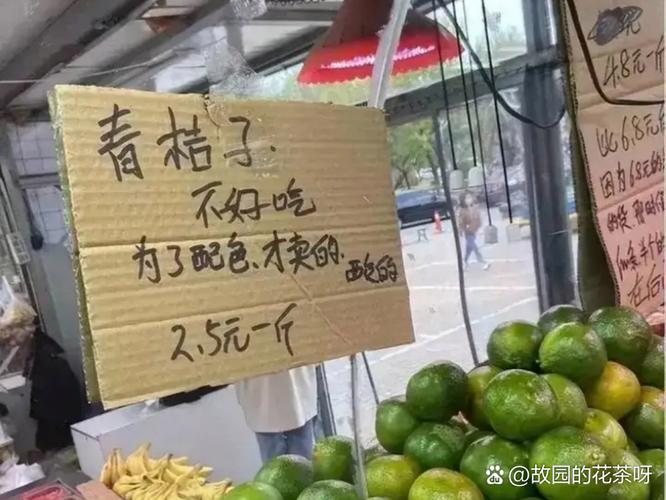 青桔子.
不好吃
为了配色、才卖的、
2.5元一斤
4.8元一
6.8元
因为6.8元的
在后
百度 @故园的花茶呀